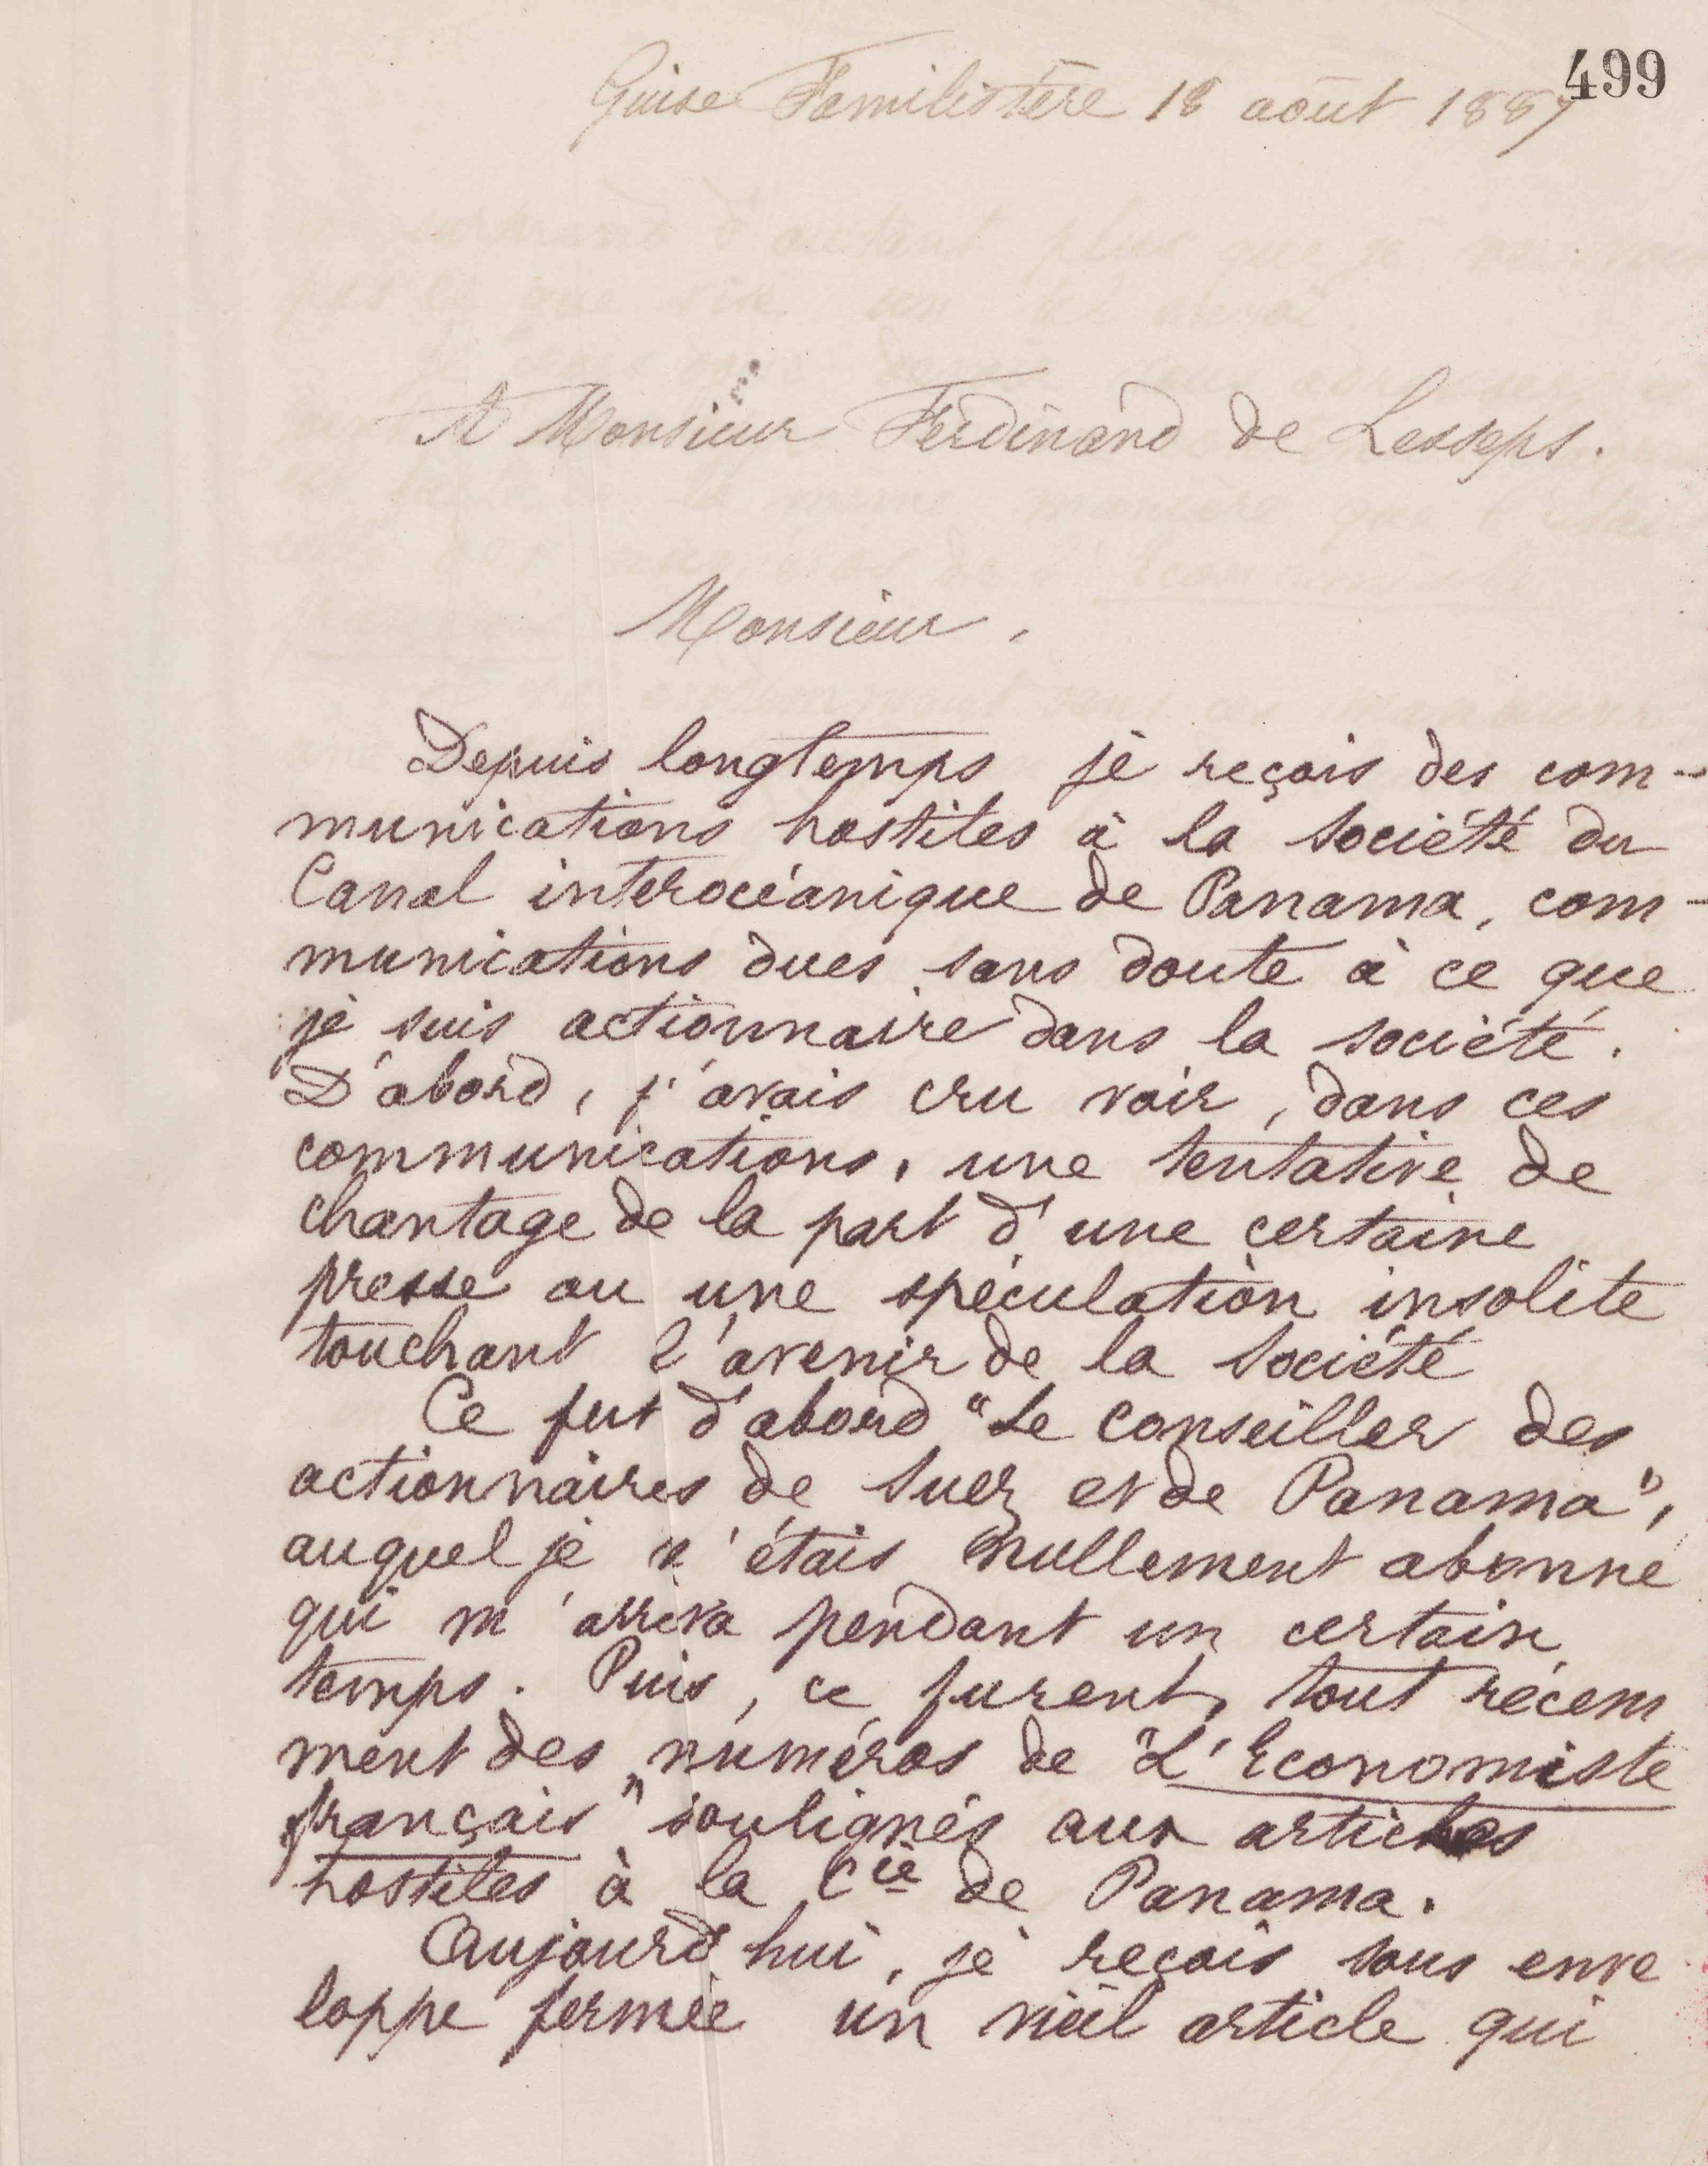 499
Guise Familistère 18 août 1887
A Monsieur Ferdinand de Lesseps.
Monsieur,
Depuis longtemps je reçois des com-
munications hostiles à la Société du
Canal interocéanique de Panama, com-
munications dues sans doute à ce que
je suis actionnaire dans la société.
D'abord, j'avais cru voir, dans ces
communications, une tentative de
chantage de la part d'une certaine
presse ou une spéculation insolite
touchant l'avenir de la Société
Ce fut d'abord "Le conseiller des
actionnaires de Suez et de Panama",
auquel je n'étais nullement abonné
qui m'arriva pendant un certain
temps. Puis, ce furent, tout récem
ment des numéros de "L'Economiste
français" soulignés aux articles
hostiles à la Cie de Panama.
Aujourd'hui, je reçois sous enve
loppe fermée un vieil article qui